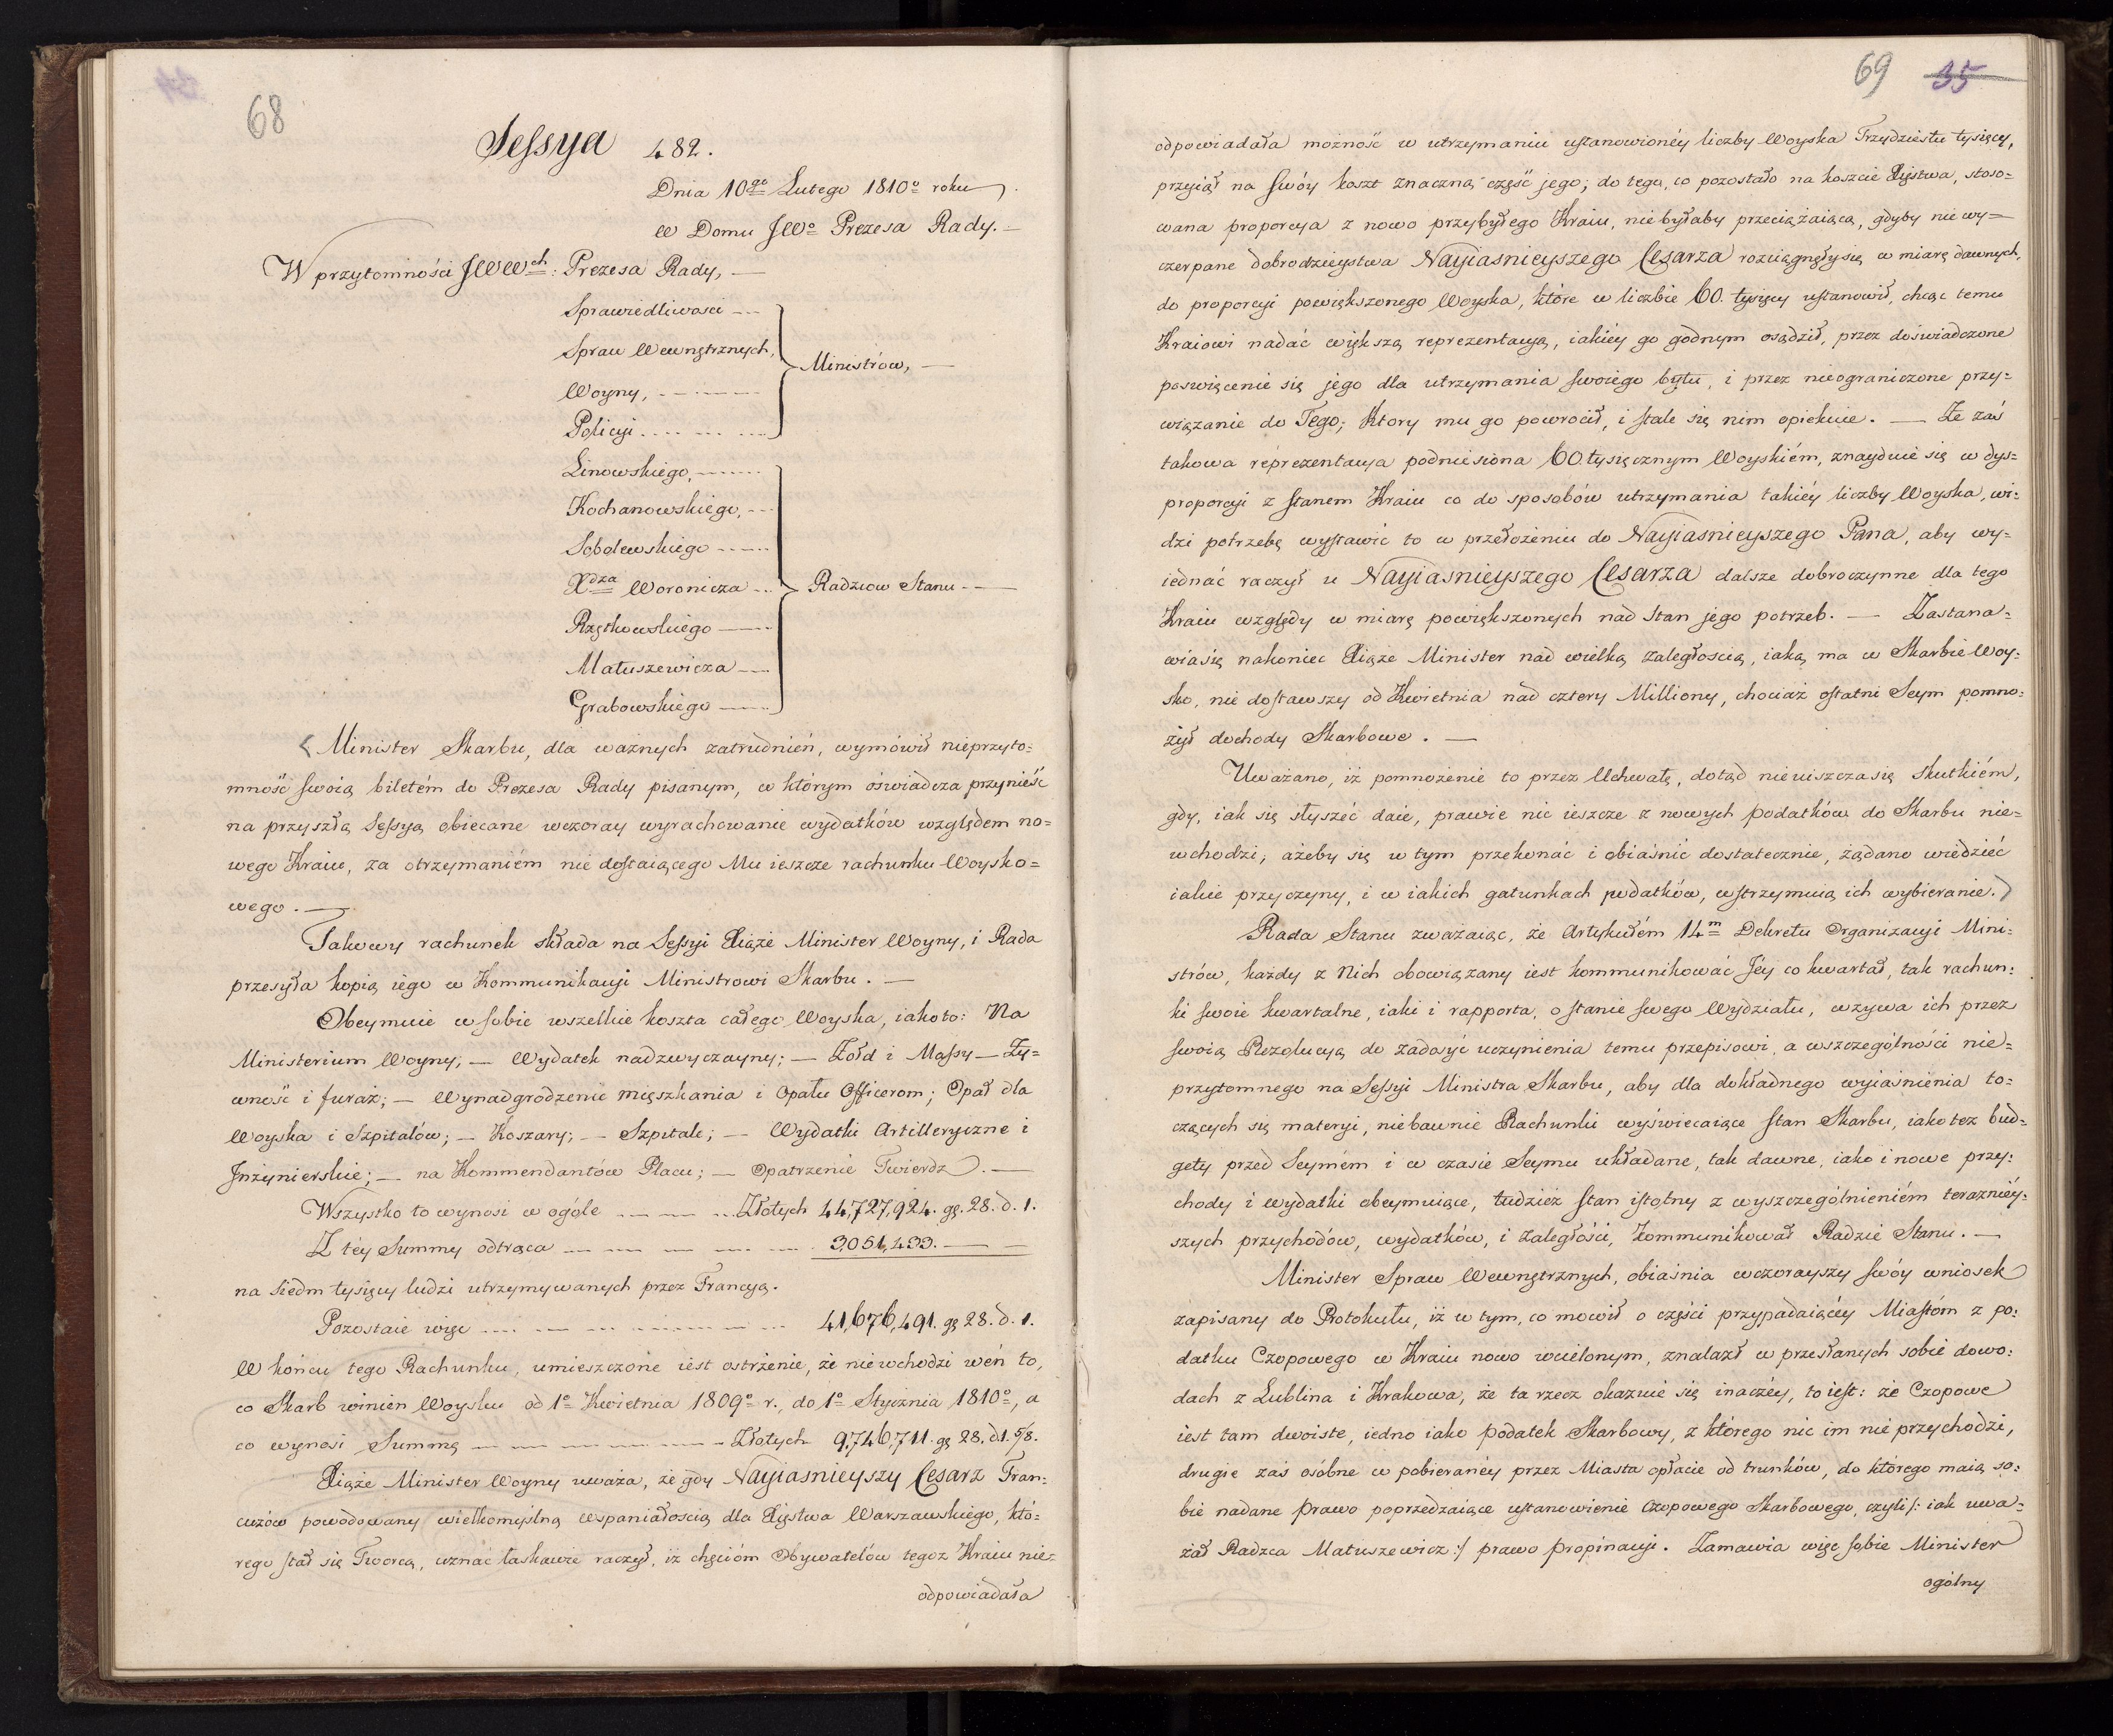 68
Sessya 482.
Dnia 10go Lutego 1810o roku.
W Domu JWo Prezesa Rady. —
W przytomności JWWch: Prezesa Rady, —
Sprawiedliwosci ---
Spraw Wewnętrznych,
Ministrów, —
Woyny, -----
Policyi ........
Linowskiego, -----
Kochanowskiego, ---
Sobolewskiego -----
Xdza Woronicza ---
Radzcow Stanu ---
Rzętkowskiego ——
Matuszewicza ——
Grabowskiego ——
Minister Skarbu, dla ważnych zatrudnień, wymówił nieprzyto=
mność swoią biletém do Prezesa Rady pisanym, w którym oświadcza przynieść
na przyszłą Sessyą obiecane wczoray wyrachowanie wydatków względem no=
wego Kraiu, za otrzymaniém nie dostaiącego Mu ieszcze rachunku Woysko=
wego. —
Takowy rachunek składa na Sessyi Xiąże Minister Woyny, i Rada
przesyła kopią iego w Kommunikacyi Ministrowi Skarbu. —
Obeymuie w sobie wszelkie koszta całego Woyska, iakoto: Na
Ministerium Woyny; — Wydatek nadzwyczayny; — Żołd i Massy — Ży=
wność i furaż; — Wynadgrodzenie mięszkania i Opału Officerom; Opał dla
Woyska i Szpitalów; — Koszary; — Szpitale; — Wydatki Artilleryczne i
Inżynierskie; — na Kommendantów Placu; — Opatrzenie Twierdz. —
Wszystko to wynosi w ogóle — — — Złotych 44,727,924. gr. 28. d. 1.
Z téy Summy odtrąca — — — — — 3,051,433. — —
na siedm tysięcy ludzi utrzymywanych przez Francyą.
Pozostaie więc — — — — — 41,676,491. gr 28. d. 1.
W końcu tego Rachunku, umieszczone iest ostrżenie, że niewchodzi weń to,
co Skarb winien Woysku od 1o Kwietnia 1809o r., do 1o Stycznia 1810o, a
co wynosi Summę — — — — — Złotych 9,746,711. gr 28. d 1. 5/8.
Xiąże Minister Woyny uważa, że gdy Nayiasnieyszy Cesarz Fran=
cuzów powodowany wielkomyślną wspaniałoscią dla Xięstwa Warszawskiego, któ=
rego stał się Tworcą, uznać łaskawie raczył, iż chęcióm Obywatelów tegoż Kraiu nie=
odpowiadała
69 35
odpowiadała możność w utrzymaniu ustanowionéy liczby Woyska Trzydziestu tysięcy,
przyiął na swóy koszt znaczną część jego; do tego, co pozostało na koszcie Xięstwa, stoso=
wana proporcya z nowo przybyłego Kraiu, niebyłaby przeciążaiącą, gdyby nie wy=
czerpane dobrodzieystwa Nayiasnieyszego Cesarza rozciągnęłysię w miarę dawnych,
do proporcyi powiększonego Woyska, które w liczbie 60. tysięcy ustanowił, chcąc temu
Kraiowi nadać większą reprezentacyą, iakiéy go godnym osądził, przez doświadczone
poswięcenie się jego dla utrzymania swoiego bytu, i przez nieograniczone przy=
wiązanie do Tego; Ktory mu go powrocił, i stale się nim opiekuie. — Że zaś
takowa reprezentacya podniesiona 60.tysięcznym Woyskiém, znayduie się w dys=
proporcyi z stanem Kraiu co do sposobów utrzymania takiéy liczby Woyska, wi=
dzi potrzebę wystawić to w przełożeniu do Nayiasnieyszego Pana, aby wy=
iednać raczył u Nayiasnieyszego Cesarza dalsze dobroczynne dla tego
Kraiu względy w miarę powiększonych nad stan jego potrzeb. — Zastana=
wiasię nakoniec Xiąże Minister nad wielką zaległoscią, iaką ma w Skarbie Woy=
sko, nie dostawszy od Kwietnia nad cztery Milliony, chociaż ostatni Seym pomno=
żył dochody Skarbowe. —
Uważano, iż pomnożenie to przez Uchwałę, dotąd nieuiszczasię skutkiém,
gdy, iak się słyszéć daie, prawie nic ieszcze z nowych podatków do Skarbu nie=
wchodzi; ażeby się w tym przekonać i obiaśnić dostatecznie, żądano wiedzieć
iakie przyczyny, i w iakich gatunkach podatków, wstrzymuią ich wybieranie.
Rada Stanu zważaiąc, że Artykułém 14m Dekretu Organizacyi Mini=
strów, każdy z Nich obowiązany iest kommunikować Jéy co kwartał, tak rachun=
ki swoie kwartalne, iaki i rapporta, o stanie swego Wydziału, wzywa ich przez
swoią Rezolucyą do zadosyć uczynienia temu przepisowi, a wszczególności nie=
przytomnego na Sessyi Ministra Skarbu, aby dla dokładnego wyiaśnienia to=
czących się materyi, niebawnie Rachunki wyświecaiące stan Skarbu, iakoteż bud=
gety przed Seymém i w czasie Seymu układane, tak dawne, iako i nowe przy=
chody i wydatki obeymuiące, tudzież stan istotny z wyszczególnieniém teraznieÿ=
szych przychodów, wydatków, i zaległości, kommunikował Radzie Stanu. —
Minister Spraw Wewnętrznych, obiaśnia wczorayszy swóy wniosek
zapisany do Protokułu, iż w tym, co mowił o części przypadaiącéy Miastóm z po=
datku Czopowego w Kraiu nowo wcielonym, znalazł w przesłanych sobie dowo=
dach z Lublina i Krakowa, że ta rzecz okazuie się inaczéy, to iest: że Czopowe
iest tam dwoiste, iedno iako podatek Skarbowy, z którego nic im nie przychodzi,
drugie zaś osóbne w pobieranéy przez Miasta opłacie od trunków, do którego maią so=
bie nadane prawo poprzedzaiące ustanowienie Czopowego Skarbowego, czyli /: iak uwa=
żał Radzca Matuszewicz :/ prawo propinacyi. Zamawia więc sobie Minister
ogólny